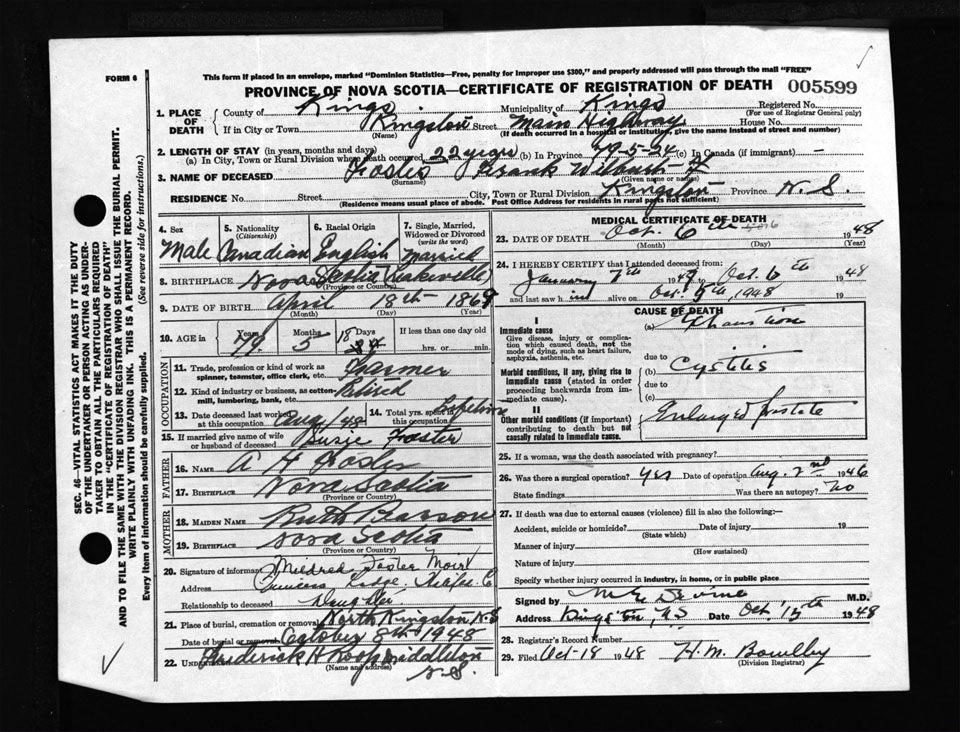 FORM 6
This form if placed in an envelope, marked "Dominion Statistics—Free, penalty for improper use $300," and properly addressed will pass through the mail "FREE"
PROVINCE OF NOVA SCOTIA—CERTIFICATE OF REGISTRATION OF DEATH 005599
1. PLACE OF DEATH
County of Kings Municipality of Kings Registered No.
(For use of Registrar General only)
If in City or Town Kingston Street Main Highway House No.
(Name) (If death occurred in a hospital or institution, give the name instead of street and number)
2. LENGTH OF STAY (in years, months and days)
(a) In City, Town or Rural Division where death occurred 22 years (b) In Province 79-5-24 (c) In Canada (if immigrant) —
3. NAME OF DECEASED Foster Frank William
(Surname) (Given name or names)
RESIDENCE No. Street City, Town or Rural Division Kingston Province N.S.
(Residence means usual place of abode. Post Office Address for residents in rural parts not sufficient)
4. Sex Male
5. Nationality (Citizenship) Canadian
6. Racial Origin English
7. Single, Married, Widowed or Divorced (write the word) Married
8. BIRTHPLACE Nova Scotia
(Province or Country)
9. DATE OF BIRTH April 18th 1869
(Month) (Day) (Year)
10. AGE in Years 79 Months 5 Days 18 24 If less than one day old
hrs. or min.
OCCUPATION
11. Trade, profession or kind of work as spinner, teamster, office clerk, etc. Farmer
12. Kind of industry or business, as cotton-mill, lumbering, bank, etc. Retired
13. Date deceased last worked at this occupation Aug/48
14. Total yrs. spent in this occupation Lifetime
15. If married give name of wife or husband of deceased Susie Foster
FATHER
16. NAME A H Foster
17. BIRTHPLACE Nova Scotia
(Province or Country)
MOTHER
18. MAIDEN NAME Ruth Pearson
19. BIRTHPLACE Nova Scotia
(Province or Country)
20. Signature of informant Mildred Foster Moir
Address Lodge, Halifax Co
Relationship to deceased Daughter
21. Place of burial, cremation or removal North Kingston N.S
Date of burial or removal October 8th 1948
22. Undertaker Frederick H Roop Middleton
(Name and address) N.S.
MEDICAL CERTIFICATE OF DEATH
23. DATE OF DEATH Oct. 6th 1948
(Month) (Day) (Year)
24. I HEREBY CERTIFY that I attended deceased from:
January 7th 1948 Oct. 6th 1948
and last saw him alive on Oct. 5th, 1948 19
CAUSE OF DEATH
I
Immediate cause
Give disease, injury or complication which caused death, not the mode of dying, such as heart failure, asphyxia, asthenia, etc.
(a) Exhaustion
due to
Morbid conditions, if any, giving rise to immediate cause (stated in order proceeding backwards from immediate cause).
(b) Cystitis
due to
(c)
II
Other morbid conditions (if important) contributing to death but not causally related to immediate cause.
Enlarged prostate
25. If a woman, was the death associated with pregnancy?
26. Was there a surgical operation? Yes Date of operation Aug. 2nd 1946
State findings Was there an autopsy? No
27. If death was due to external causes (violence) fill in also the following:—
Accident, suicide or homicide? Date of injury 19
(State which)
Manner of injury
(How sustained)
Nature of injury
Specify whether injury occurred in industry, in home, or in public place
Signed by M E Devine M.D.
Address Kingston, N.S Date Oct. 15th 1948
28. Registrar's Record Number
29. Filed Oct-18 1948 H. M. Bowlby
(Division Registrar)
SEC. 46—VITAL STATISTICS ACT MAKES IT THE DUTY
OF THE UNDERTAKER OR PERSON ACTING AS UNDER-
TAKER TO OBTAIN ALL THE PARTICULARS REQUIRED
IN THE "CERTIFICATE OF REGISTRATION OF DEATH"
AND TO FILE THE SAME WITH THE DIVISION REGISTRAR WHO SHALL ISSUE THE BURIAL PERMIT.
WRITE PLAINLY WITH UNFADING INK. THIS IS A PERMANENT RECORD.
Every item of information should be carefully supplied. (See reverse side for instructions.)